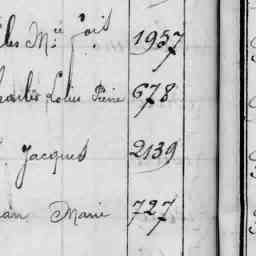 les M.ie 1957
Charles Louis Pierre 678
Jacques 2139
ean Marie 727